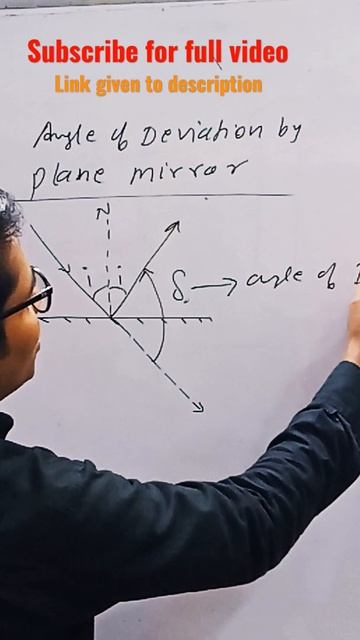 Subscribe for full video
Link given to description
Angle of Deviation by
plane mirror
N
i i
δ → angle of D